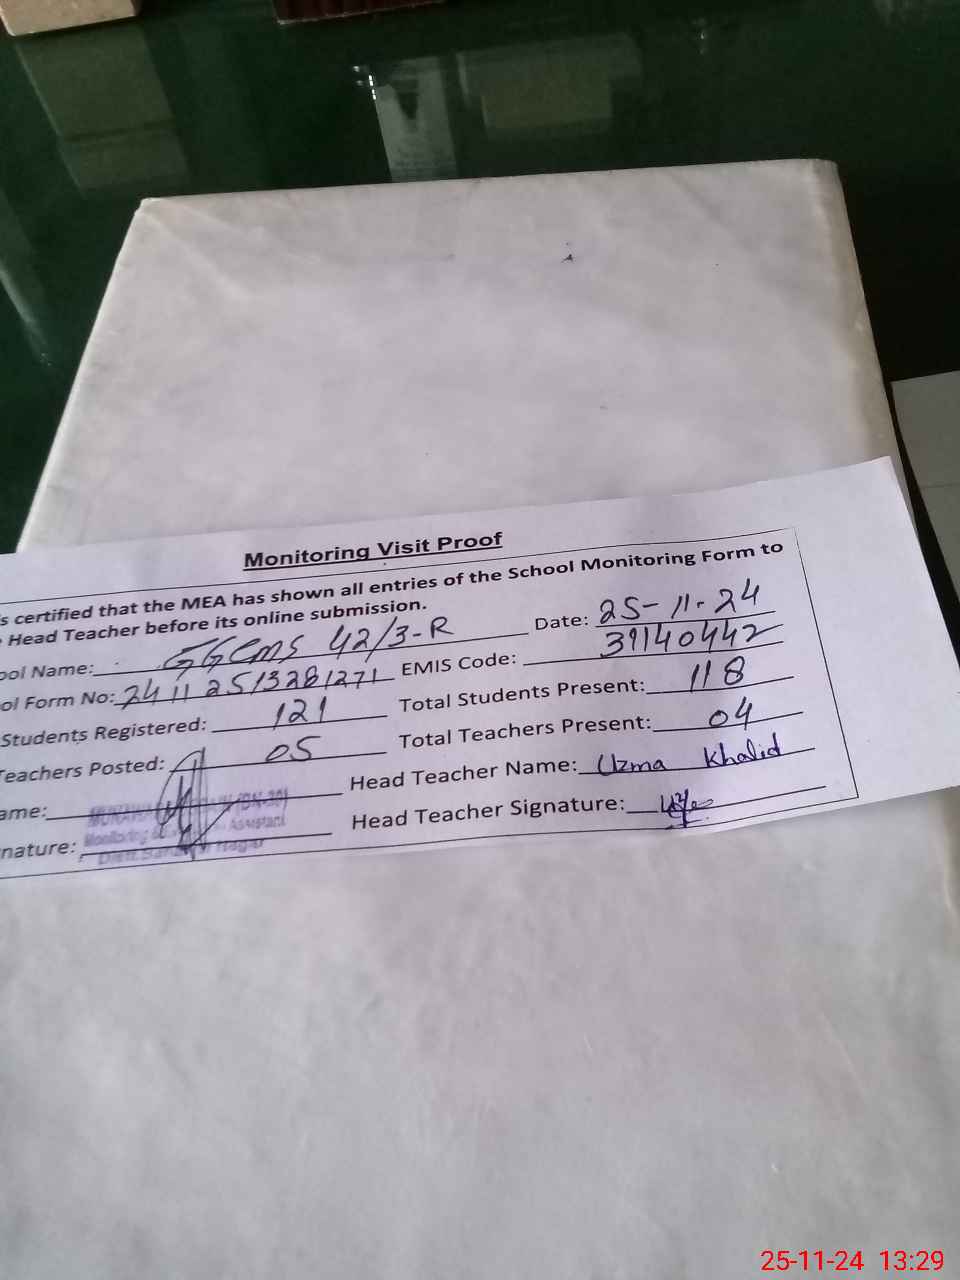 Monitoring Visit Proof
s certified that the MEA has shown all entries of the School Monitoring Form to
Head Teacher before its online submission.
ool Name: GGCMS 42/3-R Date: 25-11-24
ol Form No: 2411 2513281271 EMIS Code: 31140442
Students Registered: 121 Total Students Present: 118
Teachers Posted: 05 Total Teachers Present: 04
ame: Head Teacher Name: Uzma Khalid
nature: Head Teacher Signature:
Monitoring Assistant
25-11-24 13:29